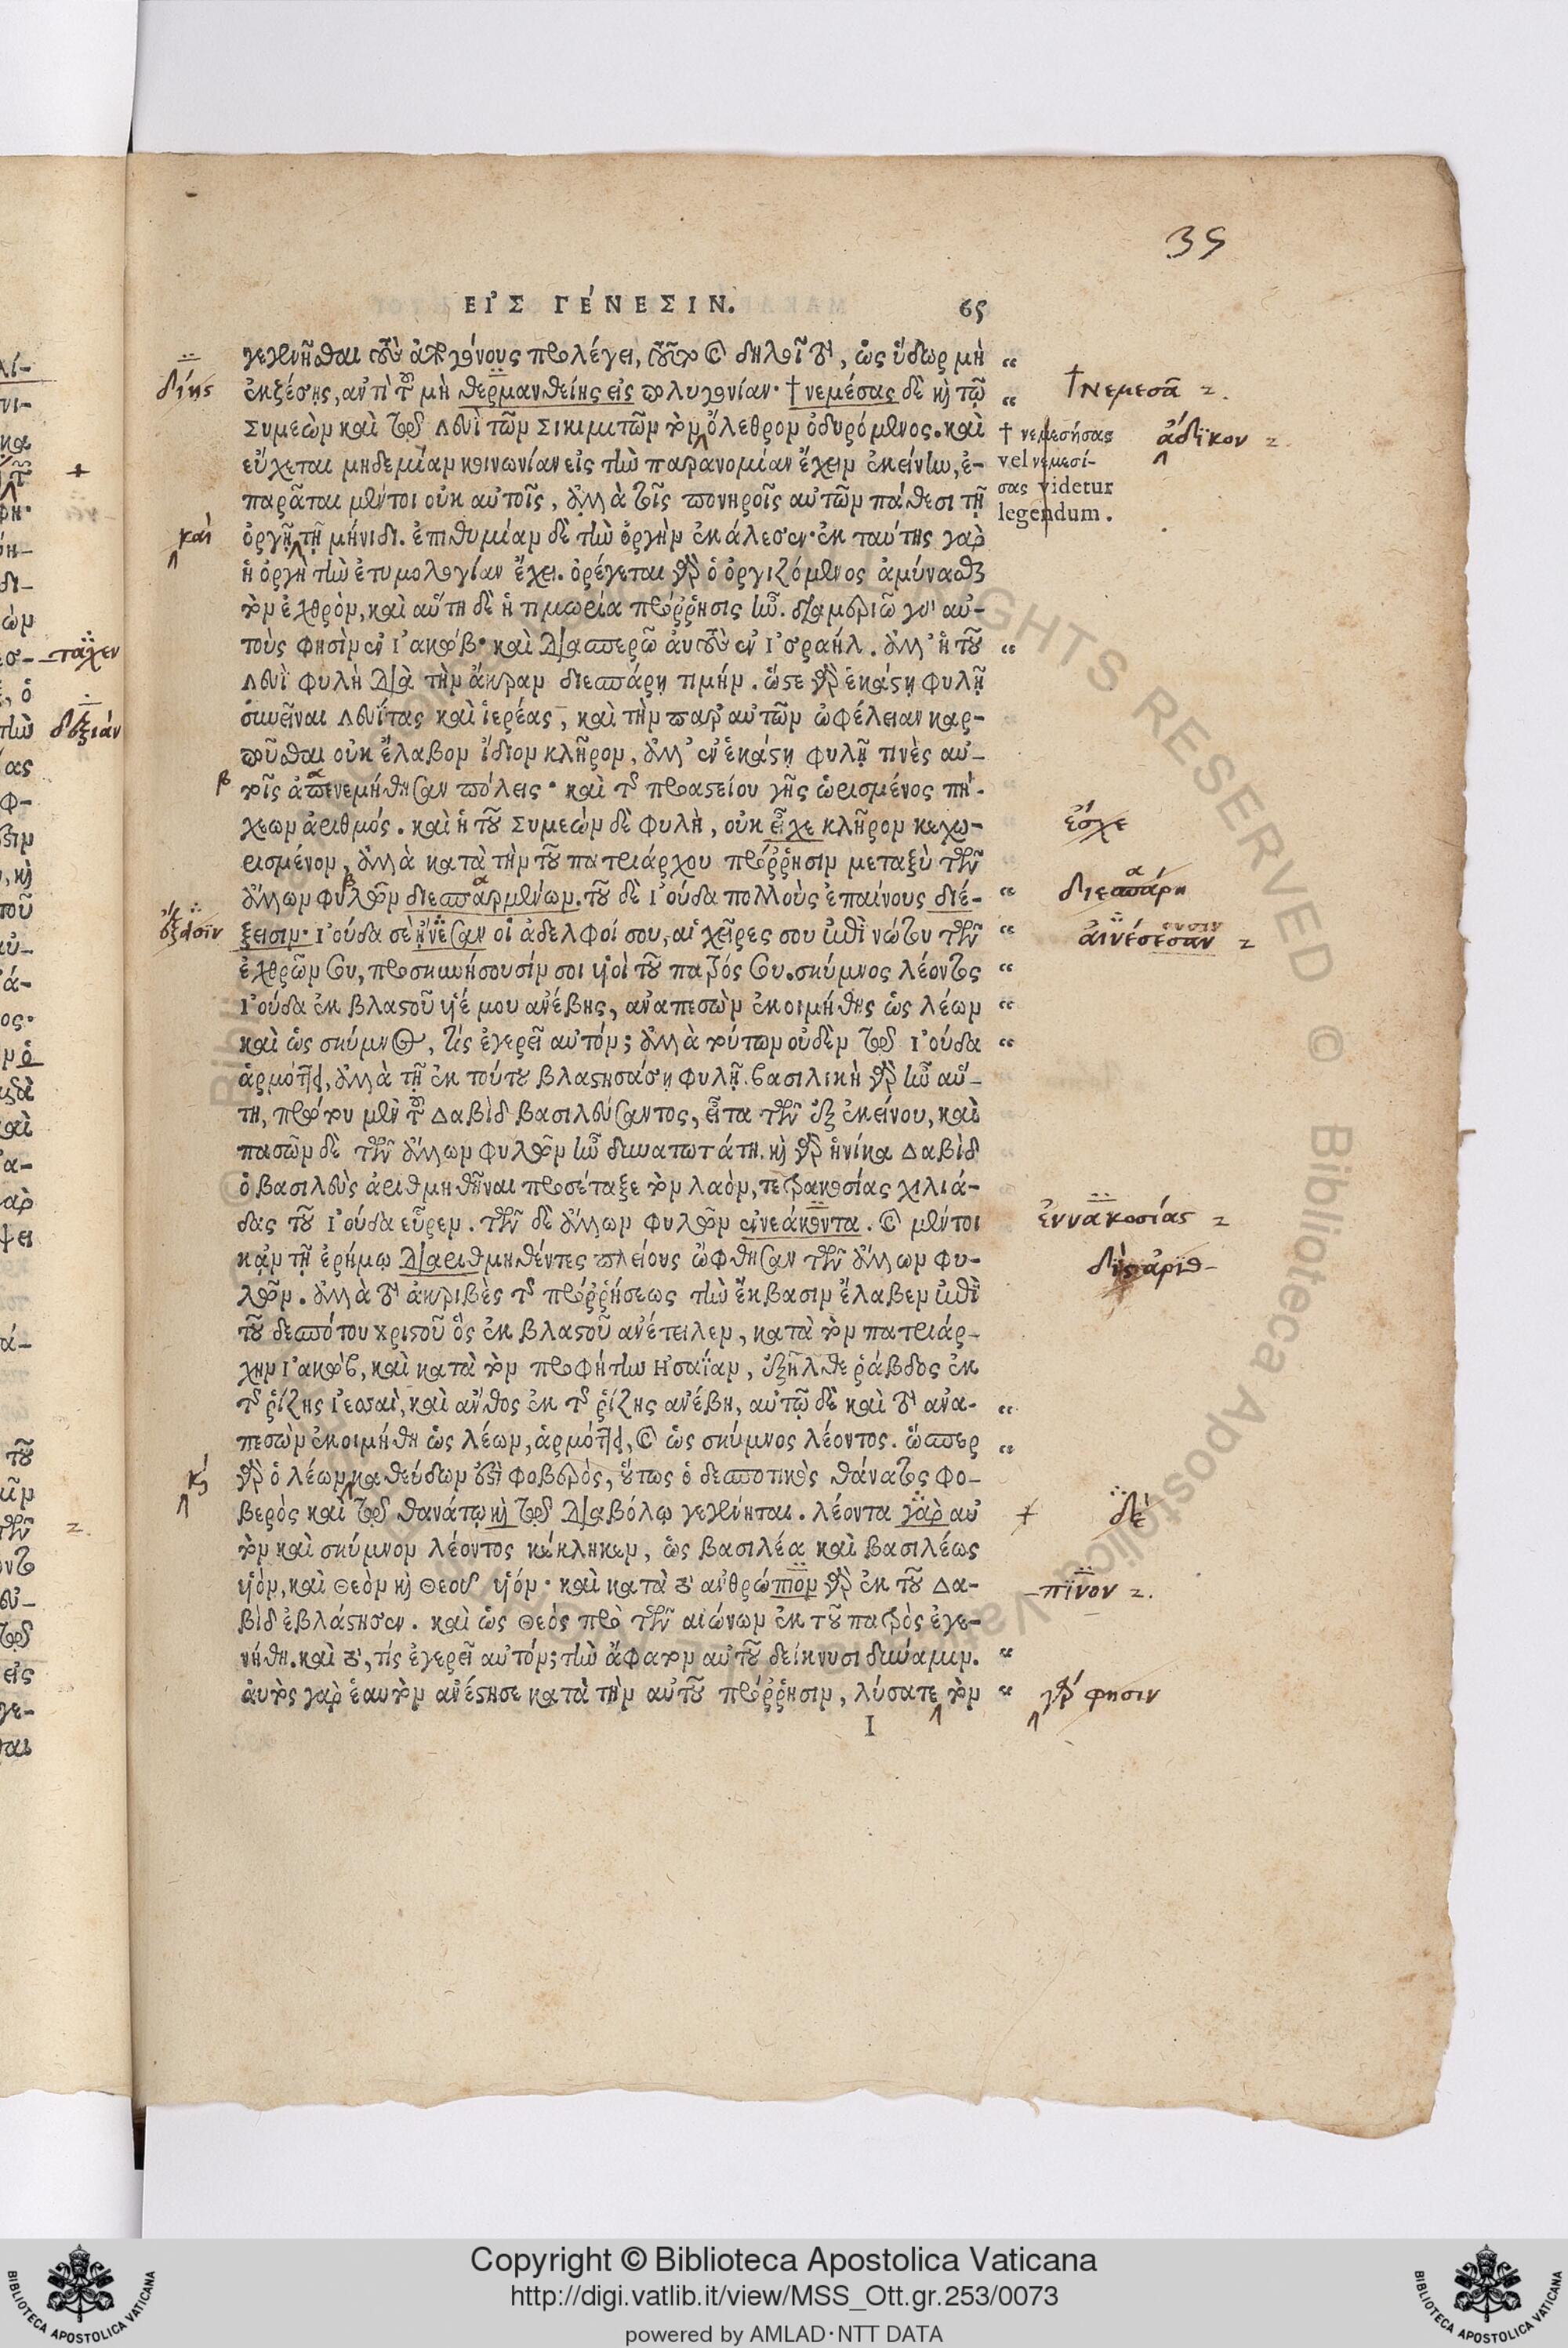 35
ΕΙ᾿Σ ΓΕ΄ΝΕΣΙΝ. 65
γεγλυῆσθαι τοὺς ἀπογόνους προλέγει, τοῦτο καὶ δηλοῖ τὸ, ὡς ὕδωρ μὴ “
δίης ἐκζέσῃς, αντὶ τοῦ μὴ θερμανθείης εἰς πολυγονίαν· † νεμέσας δὲ κὶ τῷ “ †Νεμεσᾶ
Συμεὼν καὶ τῷ Λευὶ τῶν Σικιμιτῶν τὸν ὄλεθρον ὀδυρόμενος. καὶ † νεμεσήσας ἄδικον
εὔχεται μηδεμίαν κοινωνίαν εἰς τὴν παρανομίαν ἔχειν ἐκείνην, ἐ- vel νεμεσί-
παρᾶται μέντοι οὐκ αυτοῖς, ἀλλὰ τοῖς πονηροῖς αυτῶν πάθεσι τῇ σας videtur
legendum.
καὶ ὀργῇ τῇ μήνιδι. ἐπιθυμίαν δὲ τὴν ὀργὴν ἐκάλεσεν· ἐκ ταύτης γὰρ
ἡ ὀργὴ τὴν ἐτυμολογίαν ἔχει. ὀρέγεται γὰρ ὁ ὀργιζόμενος ἀμύνασθαι
τὸν ἐχθρὸν, καὶ αὕτη δὲ ἡ τιμωρία πρόῤῥησις ἦν. διαμεριῶ γὰρ αὐ-
τοὺς φησὶν ἐν Ἰακώβ· καὶ διασπερῶ ἀυτοὺς ἐν Ἰσραήλ. ἀλλ’ ἡ τοῦ “
Λευὶ φυλὴ διὰ τὴν ἄκραν διεσπάρη τιμήν. ὥστε γὰρ ἑκάστῃ φυλῇ
συνεῖναι Λευΐτας καὶ ἱερέας, καὶ τὴν παρ’ αυτῶν ὠφέλειαν καρ-
ποῦσθαι οὐκ ἔλαβον ἴδιον κλῆρον, ἀλλ’ ἐν ἑκάστῃ φυλῇ τινὲς αὐ-
β τοῖς ἀπενεμήθησαν πόλεις· καὶ τῆς προαστείου γῆς ὡρισμένος πή-
χεων ἀριθμός. καὶ ἡ τοῦ Συμεὼν δὲ φυλὴ, οὐκ εἶχε κλῆρον κεχω- ἔσχε
ρισμένον, ἀλλὰ κατὰ τὴν τοῦ πατριάρχου πρόῤῥησιν μεταξὺ τῶν
ἄλλων φυλῶν διεσπαρμένων. τοῦ δὲ Ἰούδα πολλοὺς ἐπαίνους διέ- “ διεσπάρη
ξεισιν· Ἰούδα σὲ ᾔνεσαν οἱ ἀδελφοί σου, αἱ χεῖρες σου ἐπὶ νώτου τῶν “ αἰνέσεσαν
ἐχθρῶν σου, προσκυνήσουσίν σοι υἱοὶ τοῦ πατρός σου. σκύμνος λέοντος “
Ἰούδα ἐκ βλαστοῦ υἱέ μου ανέβης, αναπεσὼν ἐκοιμήθης ὡς λέων “
καὶ ὡς σκύμνος, τίς ἐγερεῖ αυτόν; ἀλλὰ τούτων οὐδὲν τῷ Ἰούδα “
ἁρμόττει, ἀλλὰ τῇ ἐκ τούτου βλαστησάσῃ φυλῇ. βασιλικὴ γὰρ ἦν αὕ-
τη, πρώτου μὲν τοῦ Δαβὶδ βασιλεύσαντος, εἶτα τῶν ἐξ ἐκείνου, καὶ
πασῶν δὲ τῶν ἄλλων φυλῶν ἦν δυνατωτάτη. κὶ γὰρ ἡνίκα Δαβὶδ
ὁ βασιλεὺς ἀριθμηθῆναι προσέταξε τὸν λαὸν, τετρακοσίας χιλιά-
δας τοῦ Ἰούδα εὗρεν. τῶν δὲ ἄλλων φυλῶν ἐνεάκοντα. καὶ μέντοι ἐννακοσίας
κἀν τῇ ἐρήμῳ διαριθμηθέντες πλείους ὤφθησαν τῶν ἄλλων φυ- δὶς ἀριθ-
λῶν. ἀλλὰ τὸ ἀκριβὲς τῆς προῤῥήσεως τὴν ἔκβασιν ἔλαβεν ἐπὶ
τοῦ δεσπότου χριστοῦ ὃς ἐκ βλαστοῦ ανέτειλεν, κατὰ τὸν πατριάρ-
χην Ἰακὼβ, καὶ κατὰ τὸν προφήτην Ἡσαΐαν, ἐξῆλθε ῥάβδος ἐκ
τῆς ῥίζης Ἰεσσαὶ, καὶ ανθος ἐκ τῆς ῥίζης ανέβη, αὐτῷ δὲ καὶ τὸ ανα- “
πεσὼν ἐκοιμήθη ὡς λέων, ἁρμόττει, καὶ ὡς σκύμνος λέοντος. ὥσπερ “
κὶ γὰρ ὁ λέων καθεύδων ἐστὶ φοβερὸς, οὕτως ὁ δεσποτικὸς θάνατος φο-
βερὸς καὶ τῷ θανάτῳ κὶ τῷ διαβόλῳ γεγένηται. λέοντα γὰρ αυ + δὲ
τὸν καὶ σκύμνον λέοντος κέκληκεν, ὡς βασιλέα καὶ βασιλέως
υἱὸν, καὶ Θεὸν κὶ Θεοῦ υἱόν· καὶ κατὰ τὸ ανθρώπιον γὰρ ἐκ τοῦ Δα- -πινον
βὶδ ἐβλάστησεν. καὶ ὡς Θεὸς πρὸ τῶν αἰώνων ἐκ τοῦ πατρὸς ἐγε-
νήθη. καὶ τὸ, τίς ἐγερεῖ αυτόν; τὴν ἄφατον αυτοῦ δείκνυσι δύναμιν. “
ἀυτὸς γὰρ ἑαυτὸν ανέστησε κατὰ τὴν αὐτοῦ πρόῤῥησιν, λύσατε τὸν “ γὰρ φησιν
I
Copyright © Biblioteca Apostolica Vaticana
http://digi.vatlib.it/view/MSS_Ott.gr.253/0073
powered by AMLAD·NTT DATA